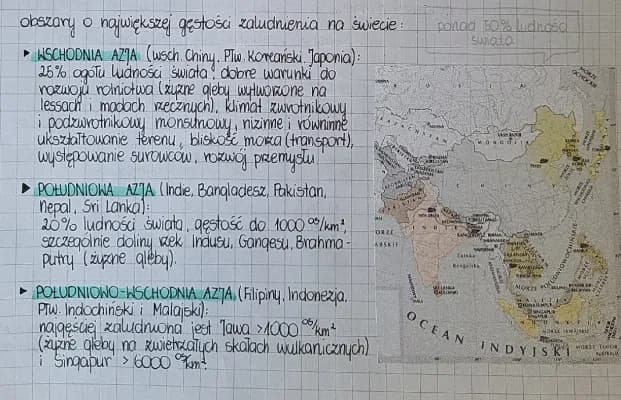 obszary o największej gęstości zaludnienia na świecie:
ponad 50% ludności
świata
▸ WSCHODNIA AZJA (wsch. Chiny, Płw. Koreański, Japonia):
25% ogółu ludności świata, dobre warunki do
rozwoju rolnictwa (żyzne gleby wytworzone na
lessach i madach rzecznych), klimat zwrotnikowy
i podzwrotnikowy monsunowy, nizinne i równinne
ukształtowanie terenu, bliskość morza (transport),
występowanie surowców, rozwój przemysłu.
▸ POŁUDNIOWA AZJA (Indie, Bangladesz, Pakistan,
Nepal, Sri Lanka):
20% ludności świata, gęstość do 1000 os/km²,
szczególnie doliny rzek Indusu, Gangesu, Brahma-
putry (żyzne gleby).
▸ POŁUDNIOWO-WSCHODNIA AZJA (Filipiny, Indonezja,
Płw. Indochiński i Malajski):
najgęściej zaludniona jest Jawa >1000 os/km²
(żyzne gleby na zwietrzałych skałach wulkanicznych)
i Singapur > 6000 os/km².
MORZE
OCHOCKIE
ROSJA
KAZACHSTAN
MONGOLIA
CHINY
INDIE
Zatoka
Bengalska
SRI LANKA
OCEAN INDYJSKI